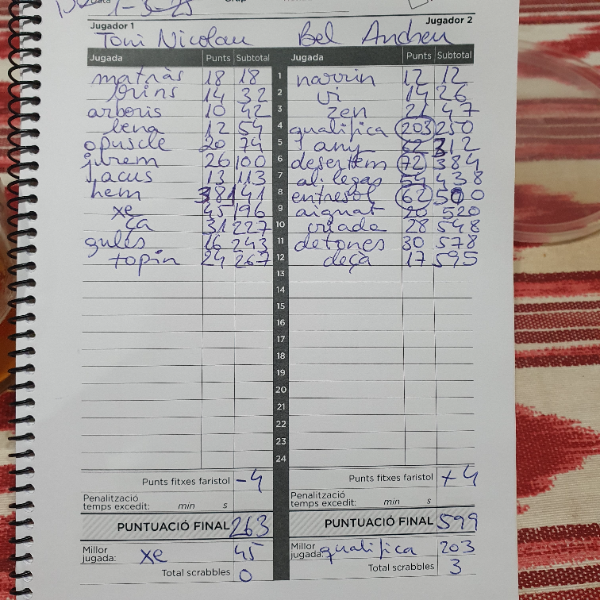 Data 1-3-25 Grup
Jugador 1 Jugador 2
Toni Nicolau Bel Andreu
Jugada Punts Subtotal Jugada Punts Subtotal
matnàs 18 18 1 narrin 12 12
brins 14 32 2 vi 14 26
arboris 10 42 3 zen 21 47
bena 12 54 4 qualifica 203 250
opuscle 20 74 5 any 62 312
jurem 26 100 6 desertem 72 384
jacus 13 113 7 al·legas 54 438
hem 38 141 8 entresol 62 500
xe 45 196 9 aignat 20 520
ça 31 227 10 criada 28 548
gules 16 243 11 detones 30 578
topin 24 267 12 deça 17 595
13
14
15
16
17
18
19
20
21
22
23
24
Punts fitxes faristol -4 Punts fitxes faristol +4
Penalització temps excedit: min s Penalització temps excedit: min s
PUNTUACIÓ FINAL 263 PUNTUACIÓ FINAL 599
Millor jugada: xe 45 Millor jugada: qualifica 203
Total scrabbles 0 Total scrabbles 3